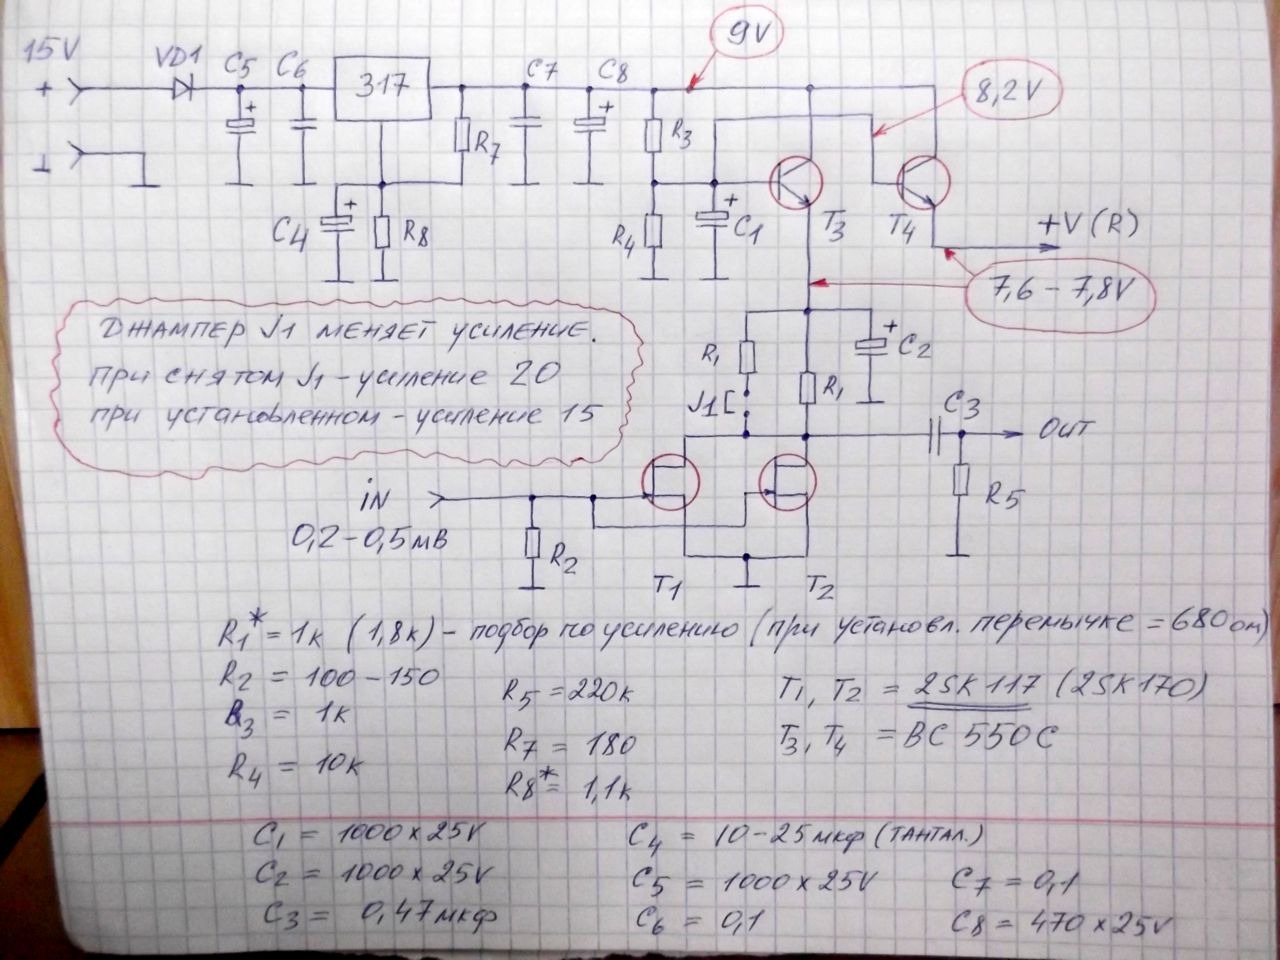 15V
VD1
C5
C6
317
C7
C8
9V
8,2V
+
+
+
R7
R3
⊥
C4
+
R8
R4
+
C1
T3
T4
+V (R)
7,6 – 7,8V
ДЖАМПЕР J1 МЕНЯЕТ УСИЛЕНИЕ.
ПРИ СНЯТОМ J1 – УСИЛЕНИЕ 20
ПРИ УСТАНОВЛЕННОМ – УСИЛЕНИЕ 15
R1
J1
R1
+
C2
C3
OUT
R5
iN
0,2 – 0,5 мВ
R2
T1
T2
R1* = 1к (1,8к) – подбор по усилению (при установл. перемычке = 680 ом)
R2 = 100 – 150
R3 = 1к
R4 = 10к
R5 = 220к
R7 = 180
R8* = 1,1к
T1, T2 = 2SK117 (2SK170)
T3, T4 = BC 550C
C1 = 1000 x 25V
C2 = 1000 x 25V
C3 = 0,47 мкф
C4 = 10 – 25 мкф (ТАНТАЛ.)
C5 = 1000 x 25V
C6 = 0,1
C7 = 0,1
C8 = 470 x 25V